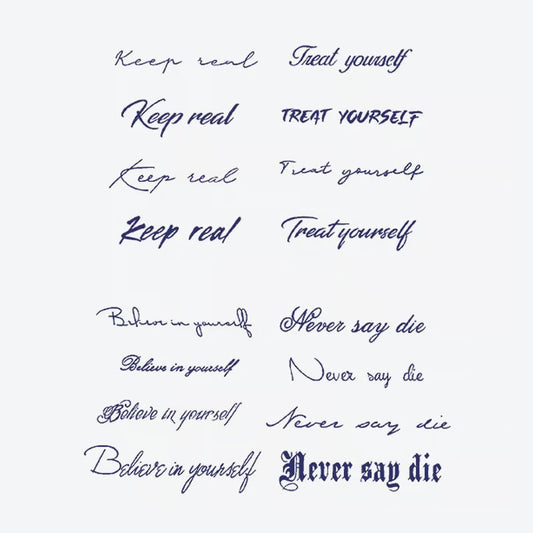 Keep real
Treat yourself
Keep real
TREAT YOURSELF
Keep real
Treat yourself
Keep real
Treat yourself
Believe in yourself
Never say die
Believe in yourself
Never say die
Believe in yourself
Never say die
Believe in yourself
Never say die